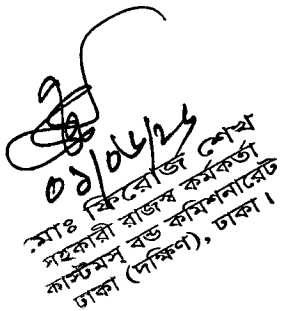 ০১/০৮/২৪
মোঃ ফিরোজ শেখ
সহকারী রাজস্ব কর্মকর্তা
কাস্টমস্ বন্ড কমিশনারেট
ঢাকা (দক্ষিণ), ঢাকা।